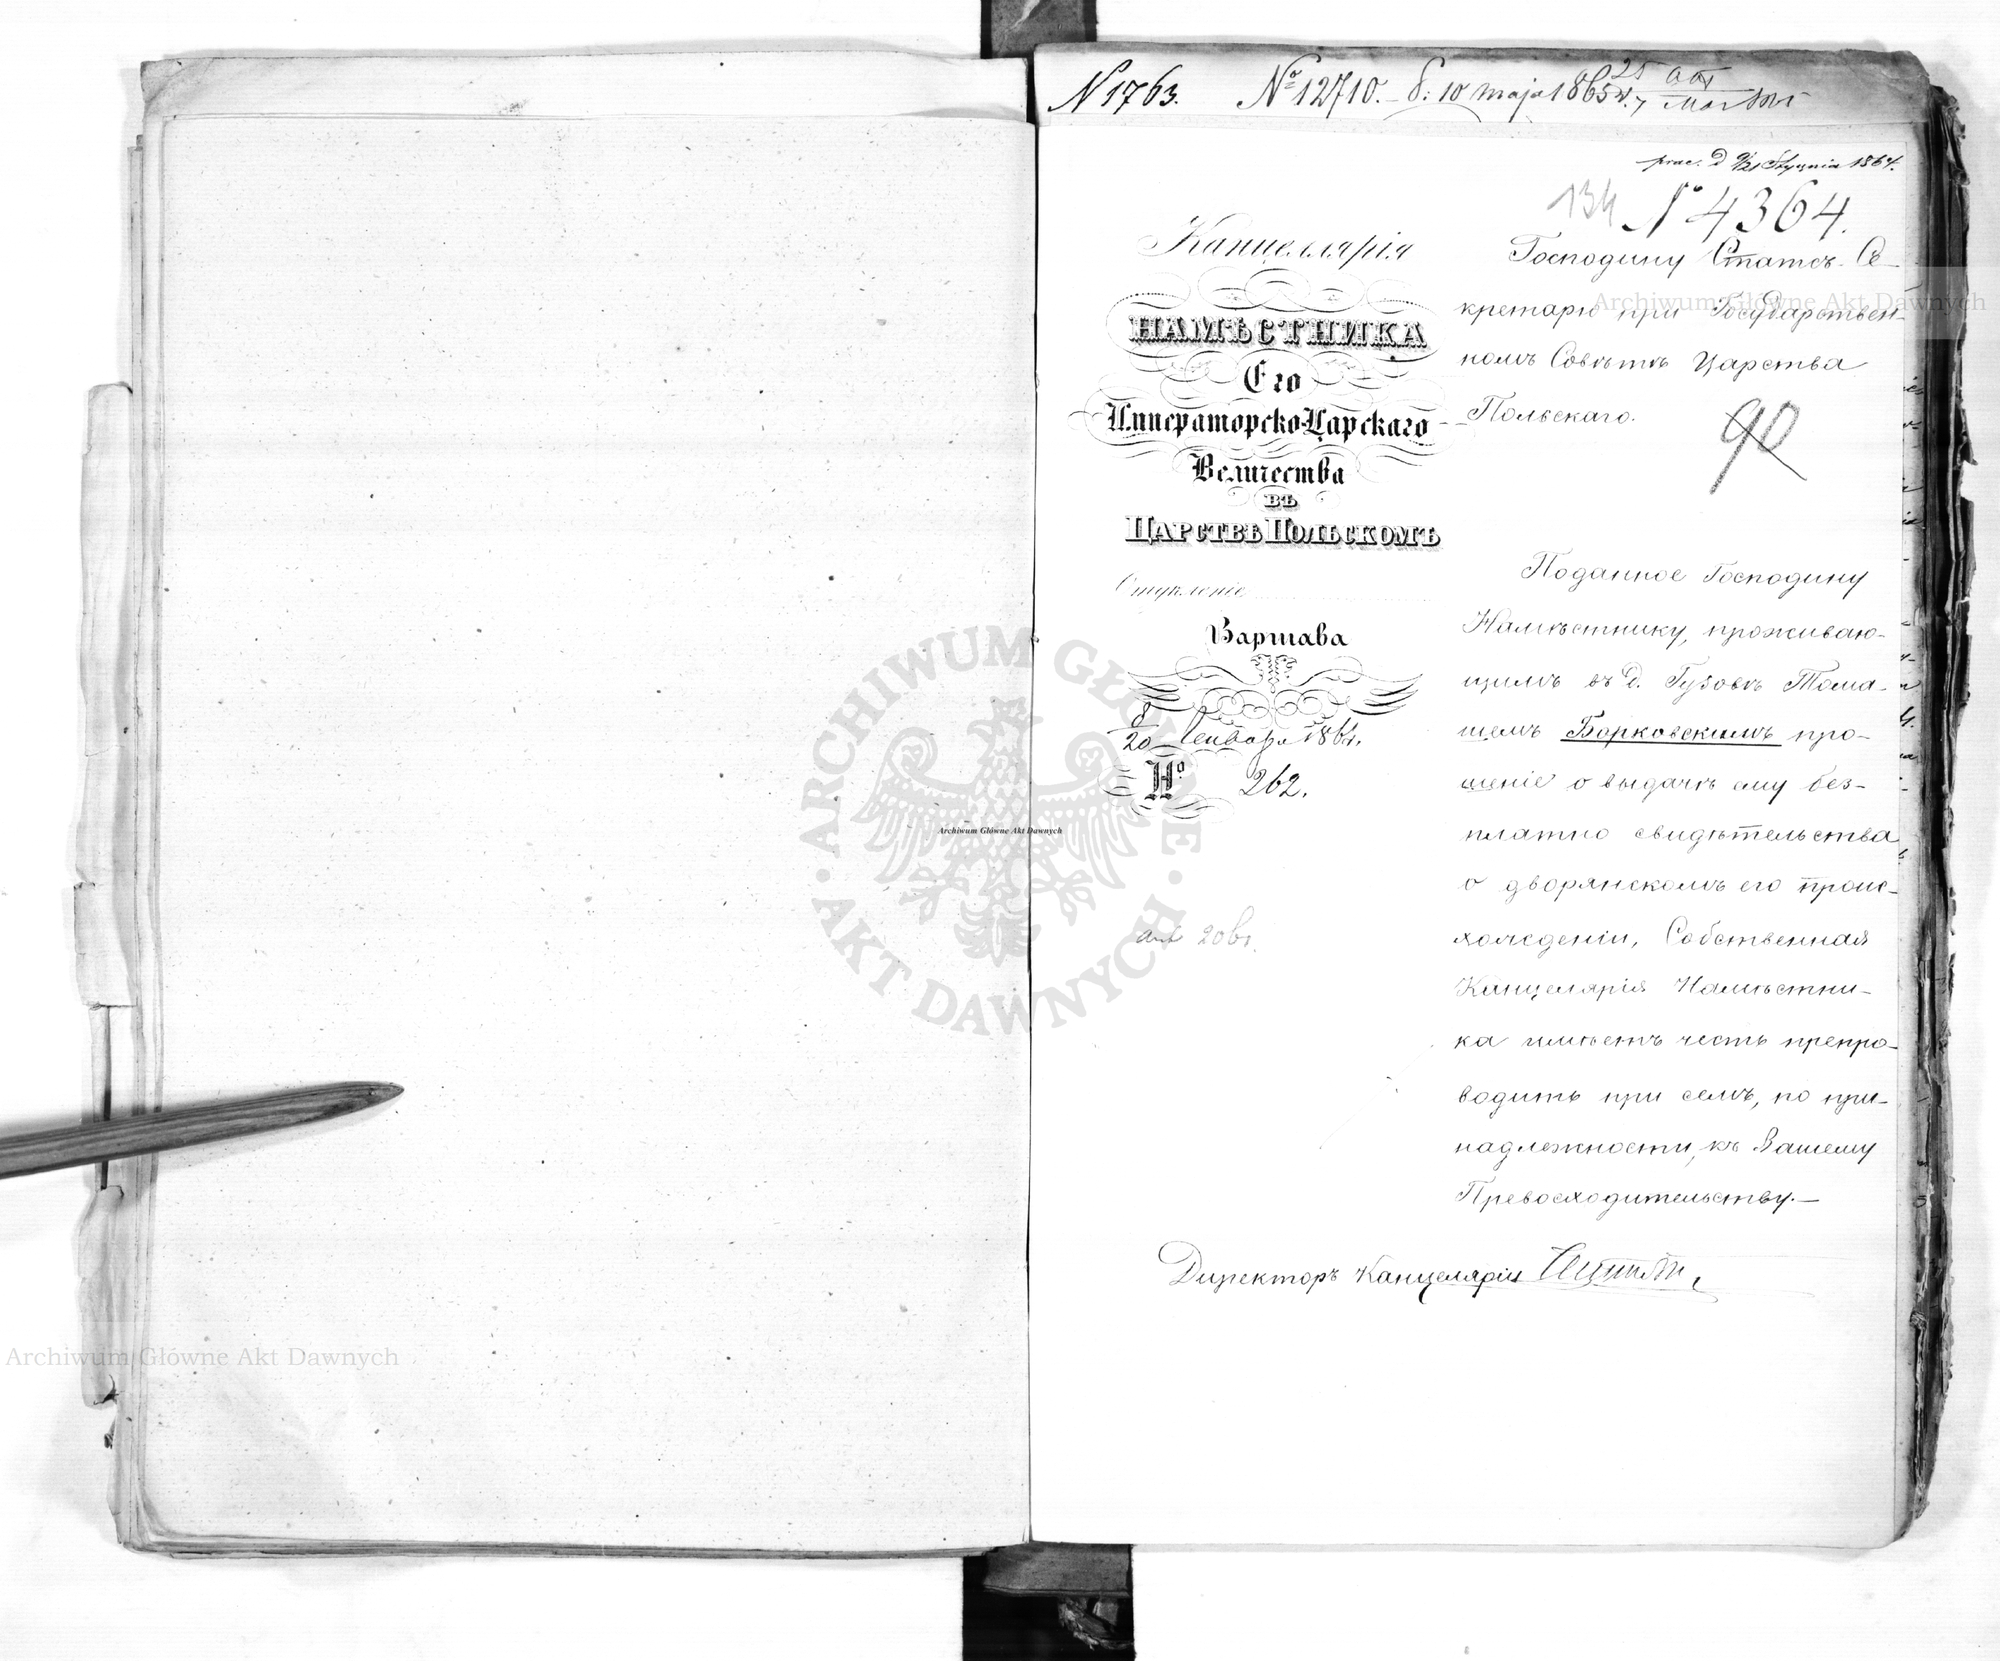 N 1763. № 12710. d: 10 maja 1865 r. 25
prac. d 9/21 Stycznia 1864.
134 № 4364.
Канцеллярія
НАМѢСТНИКА
Его
Императорско-Царскаго
Величества
въ
ЦАРСТВѢ ПОЛЬСКОМЪ
Отдѣленіе
Варшава
8/20 Генваря 1864.
№ 262.
206
Господину Статсъ-Се-
кретарю при Государствен-
номъ Совѣтѣ Царства
Польскаго.
90
Поданное Господину
Намѣстнику, проживаю-
щимъ въ д. Гузовѣ Тома-
шемъ Борковскимъ про-
шеніе о выдачѣ ему без-
платно свидѣтельства
о дворянскомъ его проис-
хожденіи, Собственная
Канцелярія Намѣстни-
ка имѣетъ честь препро-
водить при семъ, по при-
надлежности, къ Вашему
Превосходительству.—
Директоръ Канцеляріи
Archiwum Główne Akt Dawnych
ARCHIWUM GŁÓWNE AKT DAWNYCH
Archiwum Główne Akt Dawnych
Archiwum Główne Akt Dawnych